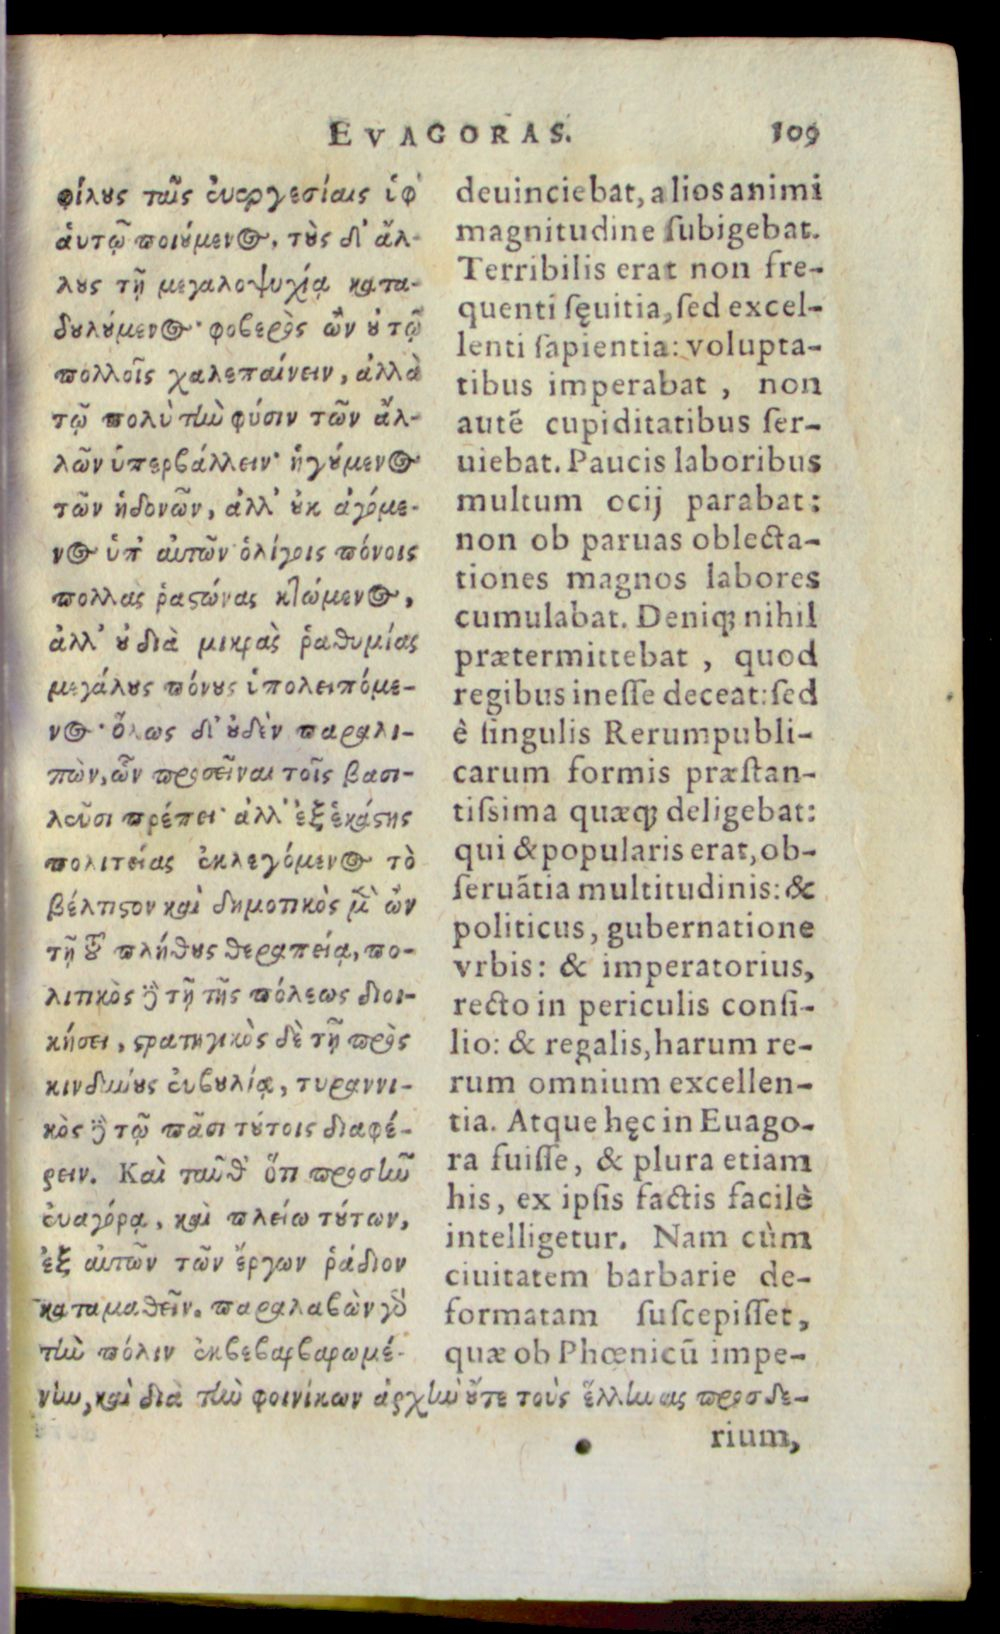 EVAGORAS. 109
φίλους ταῖς ἐυεργεσίαις ὑφ᾽
ἁυτῷ ποιούμενος, τοὺς δ᾽ ἄλ-
λους τῇ μεγαλοψυχίᾳ κατα-
δουλούμενος· φοβερὸς ὢν οὐ τῷ
πολλοῖς χαλεπαίνειν, ἀλλὰ
τῷ πολὺ τὴν φύσιν τῶν ἄλ-
λων ὑπερβάλλειν· ἡγούμενος
τῶν ἡδονῶν, ἀλλ᾽ οὐκ ἀγόμε-
νος ὑπ᾽ αὐτῶν· ὀλίγοις πόνοις
πολλὰς ῥαστώνας κτώμενος,
ἀλλ᾽ οὐ διὰ μικρὰς ῥαθυμίας
μεγάλους πόνους ὑπολειπόμε-
νος· ὅλως δ᾽ οὐδὲν παραλι-
πὼν, ὧν προσεῖναι τοῖς βασι-
λεῦσι πρέπει· ἀλλ᾽ ἐξ ἑκάστης
πολιτείας ἐκλεγόμενος τὸ
βέλτιστον καὶ δημοτικὸς μὲν ὢν
τῇ τοῦ πλήθους θεραπείᾳ, πο-
λιτικὸς δὲ τῇ τῆς πόλεως διοι-
κήσει, στρατηγικὸς δὲ τῇ πρὸς
κινδύνους ἐυβουλίᾳ, τυραννι-
κὸς δὲ τῷ πᾶσι τούτοις διαφέ-
ρειν. Καὶ ταῦθ᾽ ὅτι προσῆν
ἐυαγόρᾳ, καὶ πλείω τούτων,
ἐξ αὐτῶν τῶν ἔργων ῥάδιον
καταμαθεῖν. παραλαβὼν γὰρ
τὴν πόλιν ἐκβεβαρβαρωμέ-
νην, καὶ διὰ τὴν φοινίκων ἀρχὴν οὔτε τοὺς ἕλληνας προσδε-
deuinciebat, alios animi
magnitudine ſubigebat.
Terribilis erat non fre-
quenti ſęuitia, ſed excel-
lenti ſapientia: volupta-
tibus imperabat, non
autẽ cupiditatibus ſer-
uiebat. Paucis laboribus
multum ocij parabat:
non ob paruas oblecta-
tiones magnos labores
cumulabat. Deniq; nihil
prætermittebat, quod
regibus ineſſe deceat: ſed
è ſingulis Rerumpubli-
carum formis præſtan-
tiſsima quæq; deligebat:
qui & popularis erat, ob-
ſeruãtia multitudinis: &
politicus, gubernatione
vrbis: & imperatorius,
recto in periculis conſi-
lio: & regalis, harum re-
rum omnium excellen-
tia. Atque hęc in Euago-
ra fuiſſe, & plura etiam
his, ex ipſis factis facilè
intelligetur. Nam cùm
ciuitatem barbarie de-
formatam ſuſcepiſſet,
quæ ob Phœnicũ impe-
rium,